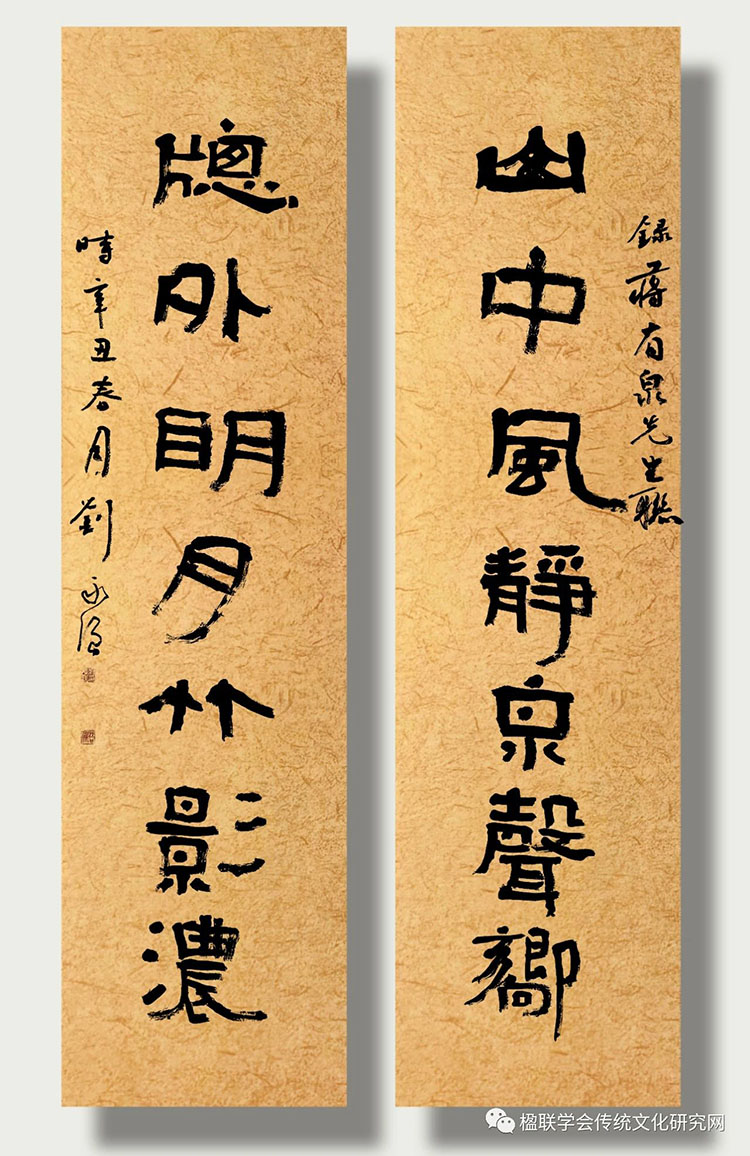 山中風靜泉聲嚮
錄蔣有泉先生聯
牕外眀月竹影濃
時辛丑春月劉
楹联学会传统文化研究网